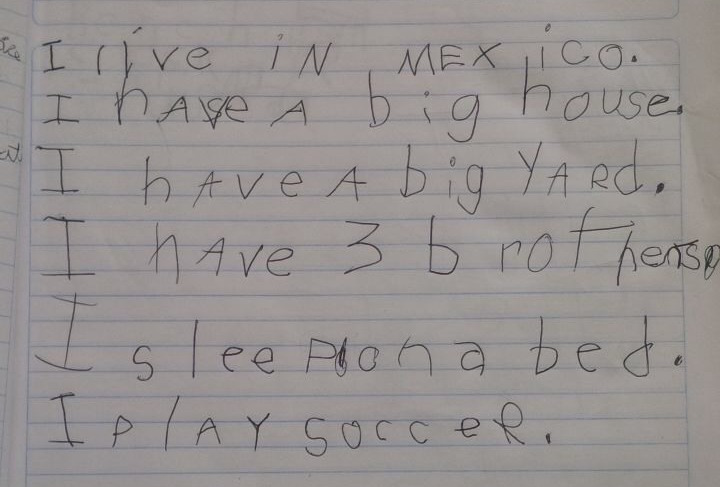 I live iN MEXico.
I hAve A big house.
I hAve A big YARd.
I hAve 3 brothers.
I sleep on a bed.
I plAY socceR.